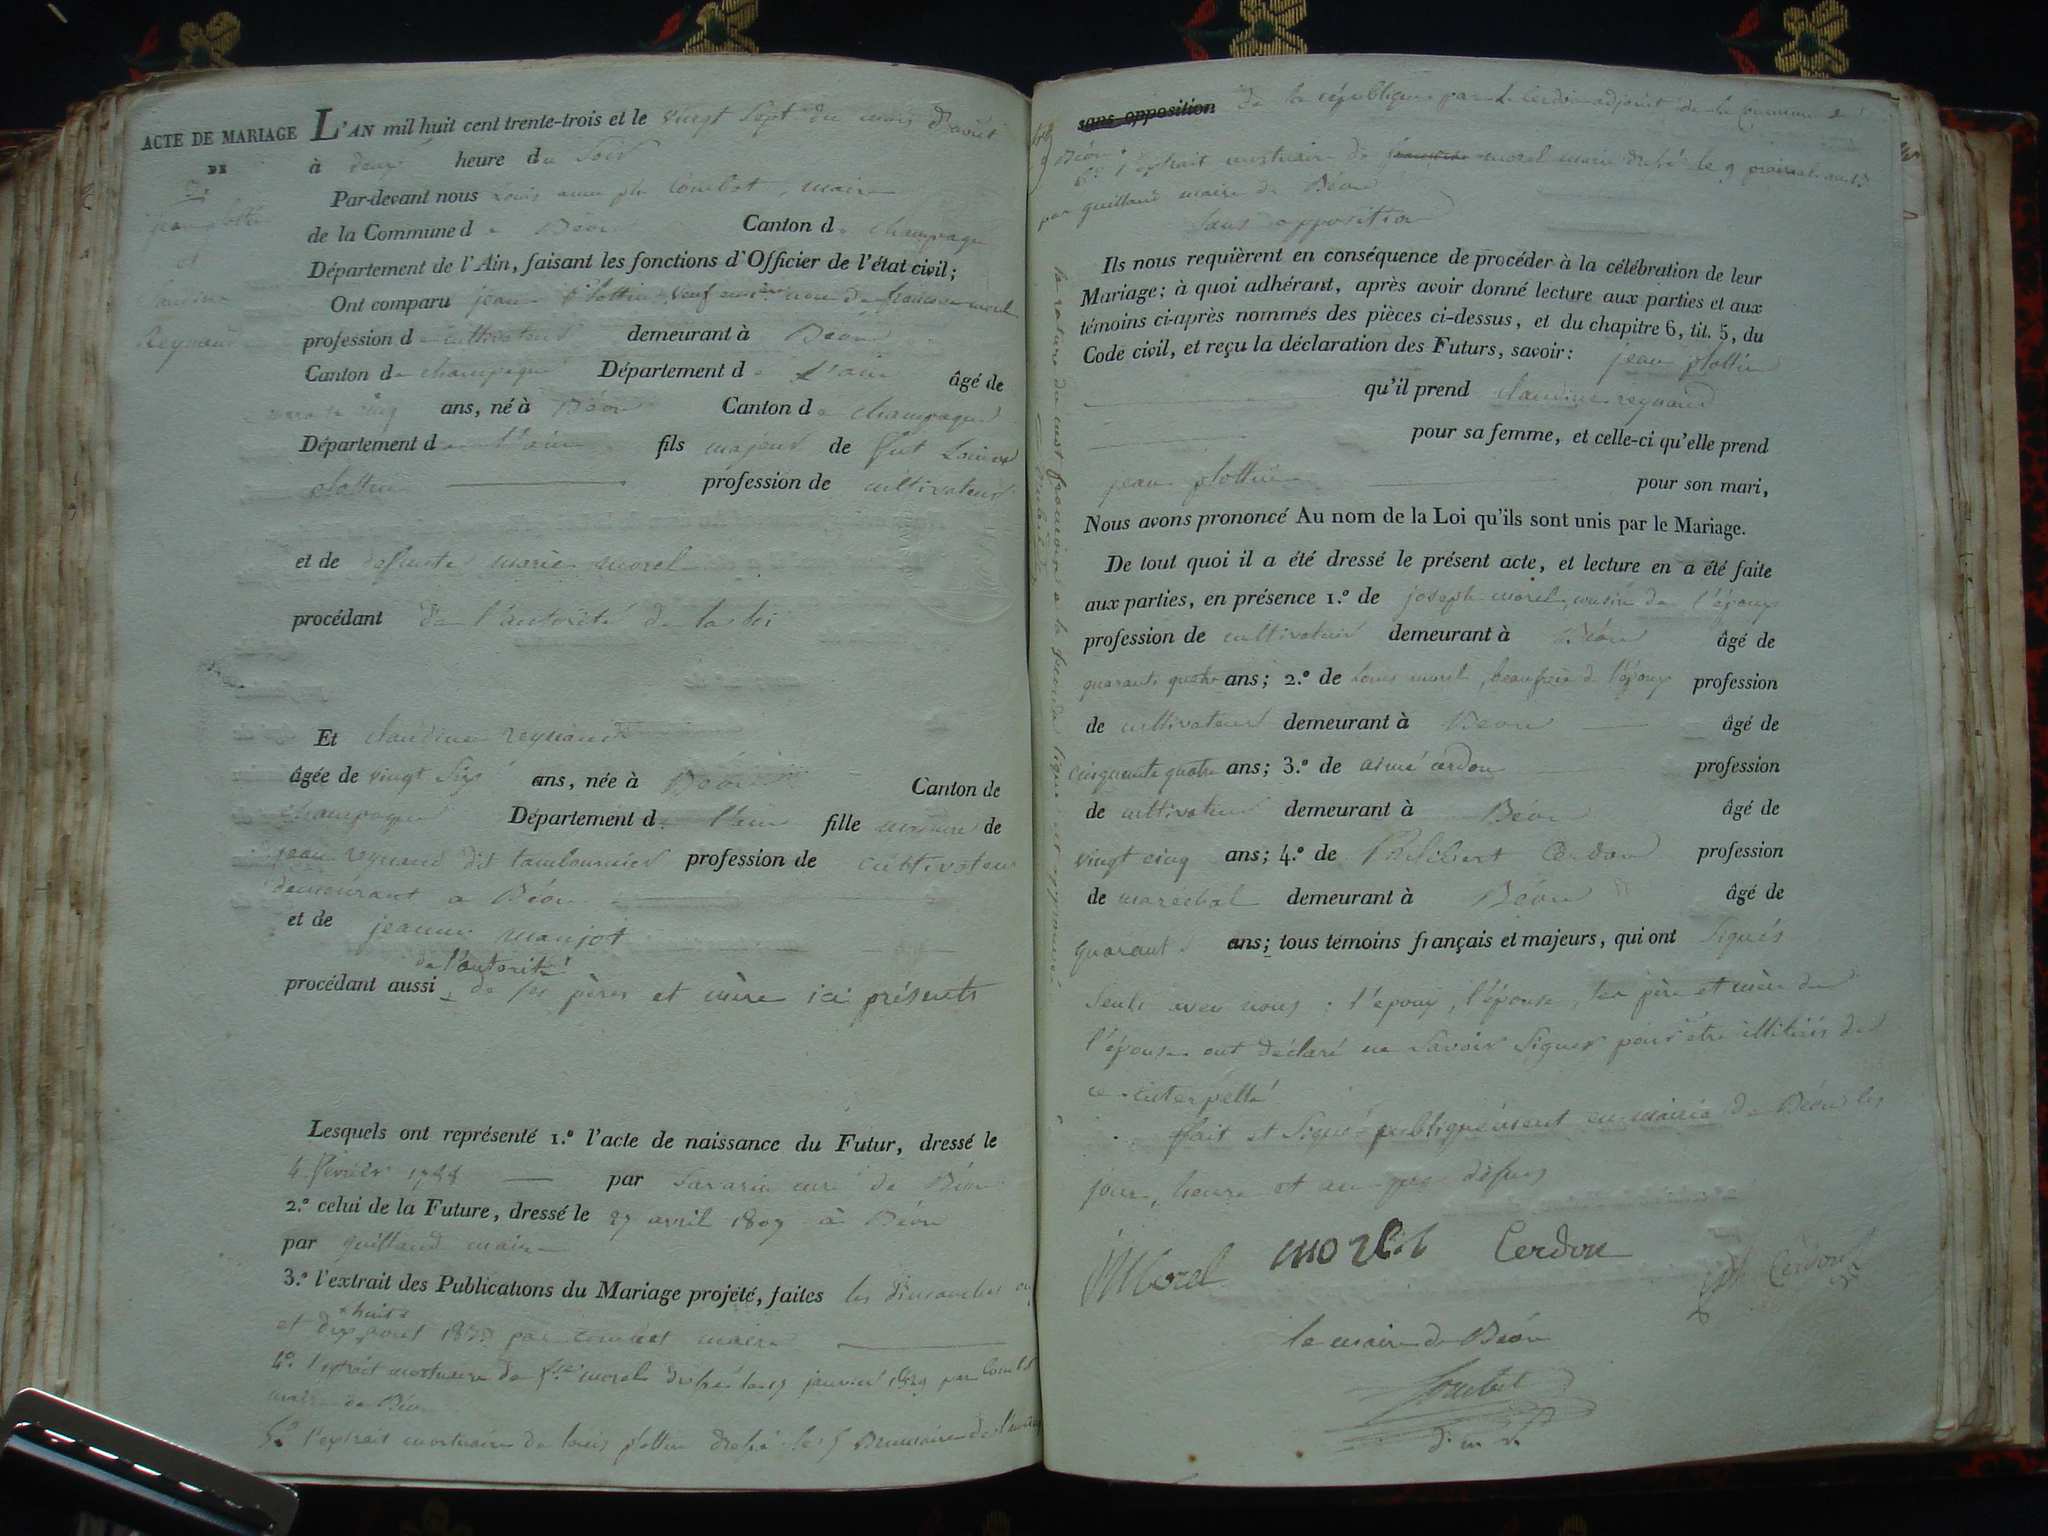 ACTE DE MARIAGE
DE
jean plottin
et
claudine
Reynaud
L'AN mil huit cent trente-trois et le vingt sept du mois d'août
à deux heure du soir
Par-devant nous Louis Combet, maire
de la Commune de Béon Canton de champagne
Département de l'Ain, faisant les fonctions d'Officier de l'état civil;
Ont comparu jean plottin, veuf de françoise morel
profession de cultivateur demeurant à Béon
Canton de champagne Département de l'ain âgé de
quarante cinq ans, né à Béon Canton de champagne
Département de l'ain fils majeur de fut Louis
plottin profession de cultivateur
et de defunte marie morel
procédant de l'autorité de la loi
Et claudine reynaud
âgée de vingt six ans, née à Béon Canton de
champagne Département d l'ain fille majeure de
jean reynaud dit tambournier profession de cultivateur
demeurant a Béon
et de jeanne manjot
de l'autorité
procédant aussi de ses pères et mère ici présents
Lesquels ont représenté 1.º l'acte de naissance du Futur, dressé le
4 février 1788 par Savarin curé de Béon
2.º celui de la Future, dressé le 27 avril 1807 à Béon
par guillaud maire
3.º l'extrait des Publications du Mariage projeté, faites les dimanches
huit
et dix août 1833 par combet maire
4.º l'extrait mortuaire de morel dréssé le 19 janvier 1829 par Combet
maire de Béon
5.º l'extrait mortuaire de louis plottin dréssé le 5 Brumaire de l'an
sans opposition de la république par Cerdon adjoint de la Commune de
Béon.
6.º l'extrait mortuaire de morel marie dréssé le 9 prairial
par guillaud maire de Béon
sans opposition
Ils nous requièrent en conséquence de procéder à la célébration de leur
Mariage; à quoi adhérant, après avoir donné lecture aux parties et aux
témoins ci-après nommés des pièces ci-dessus, et du chapitre 6, tit. 5, du
Code civil, et reçu la déclaration des Futurs, savoir: jean plottin
qu'il prend claudine reynaud
pour sa femme, et celle-ci qu'elle prend
jean plottin pour son mari,
Nous avons prononcé Au nom de la Loi qu'ils sont unis par le Mariage.
De tout quoi il a été dressé le présent acte, et lecture en a été faite
aux parties, en présence 1.º de joseph morel, cousin de l'époux
profession de cultivateur demeurant à Béon âgé de
quarante quatre ans; 2.º de Louis morel, beaufrère de l'époux profession
de cultivateur demeurant à Béon âgé de
cinquante quatre ans; 3.º de aimé cerdon profession
de cultivateur demeurant à Béon âgé de
vingt cinq ans; 4.º de Philibert Cerdon profession
de maréchal demeurant à Béon âgé de
quarante ans; tous témoins français et majeurs, qui ont signés
seuls avec nous: l'époux, l'épouse, les père et mère de
l'épouse ont déclaré ne savoir signer pour être illitérés de
ce interpellé
fait et signé publiquement en mairie de Béon les
jour, heure et an que dessus
la rature du mot françoise a la seconde ligne est approuvée
Morel morel Cerdon Ph Cerdon
le maire de Béon
Combet